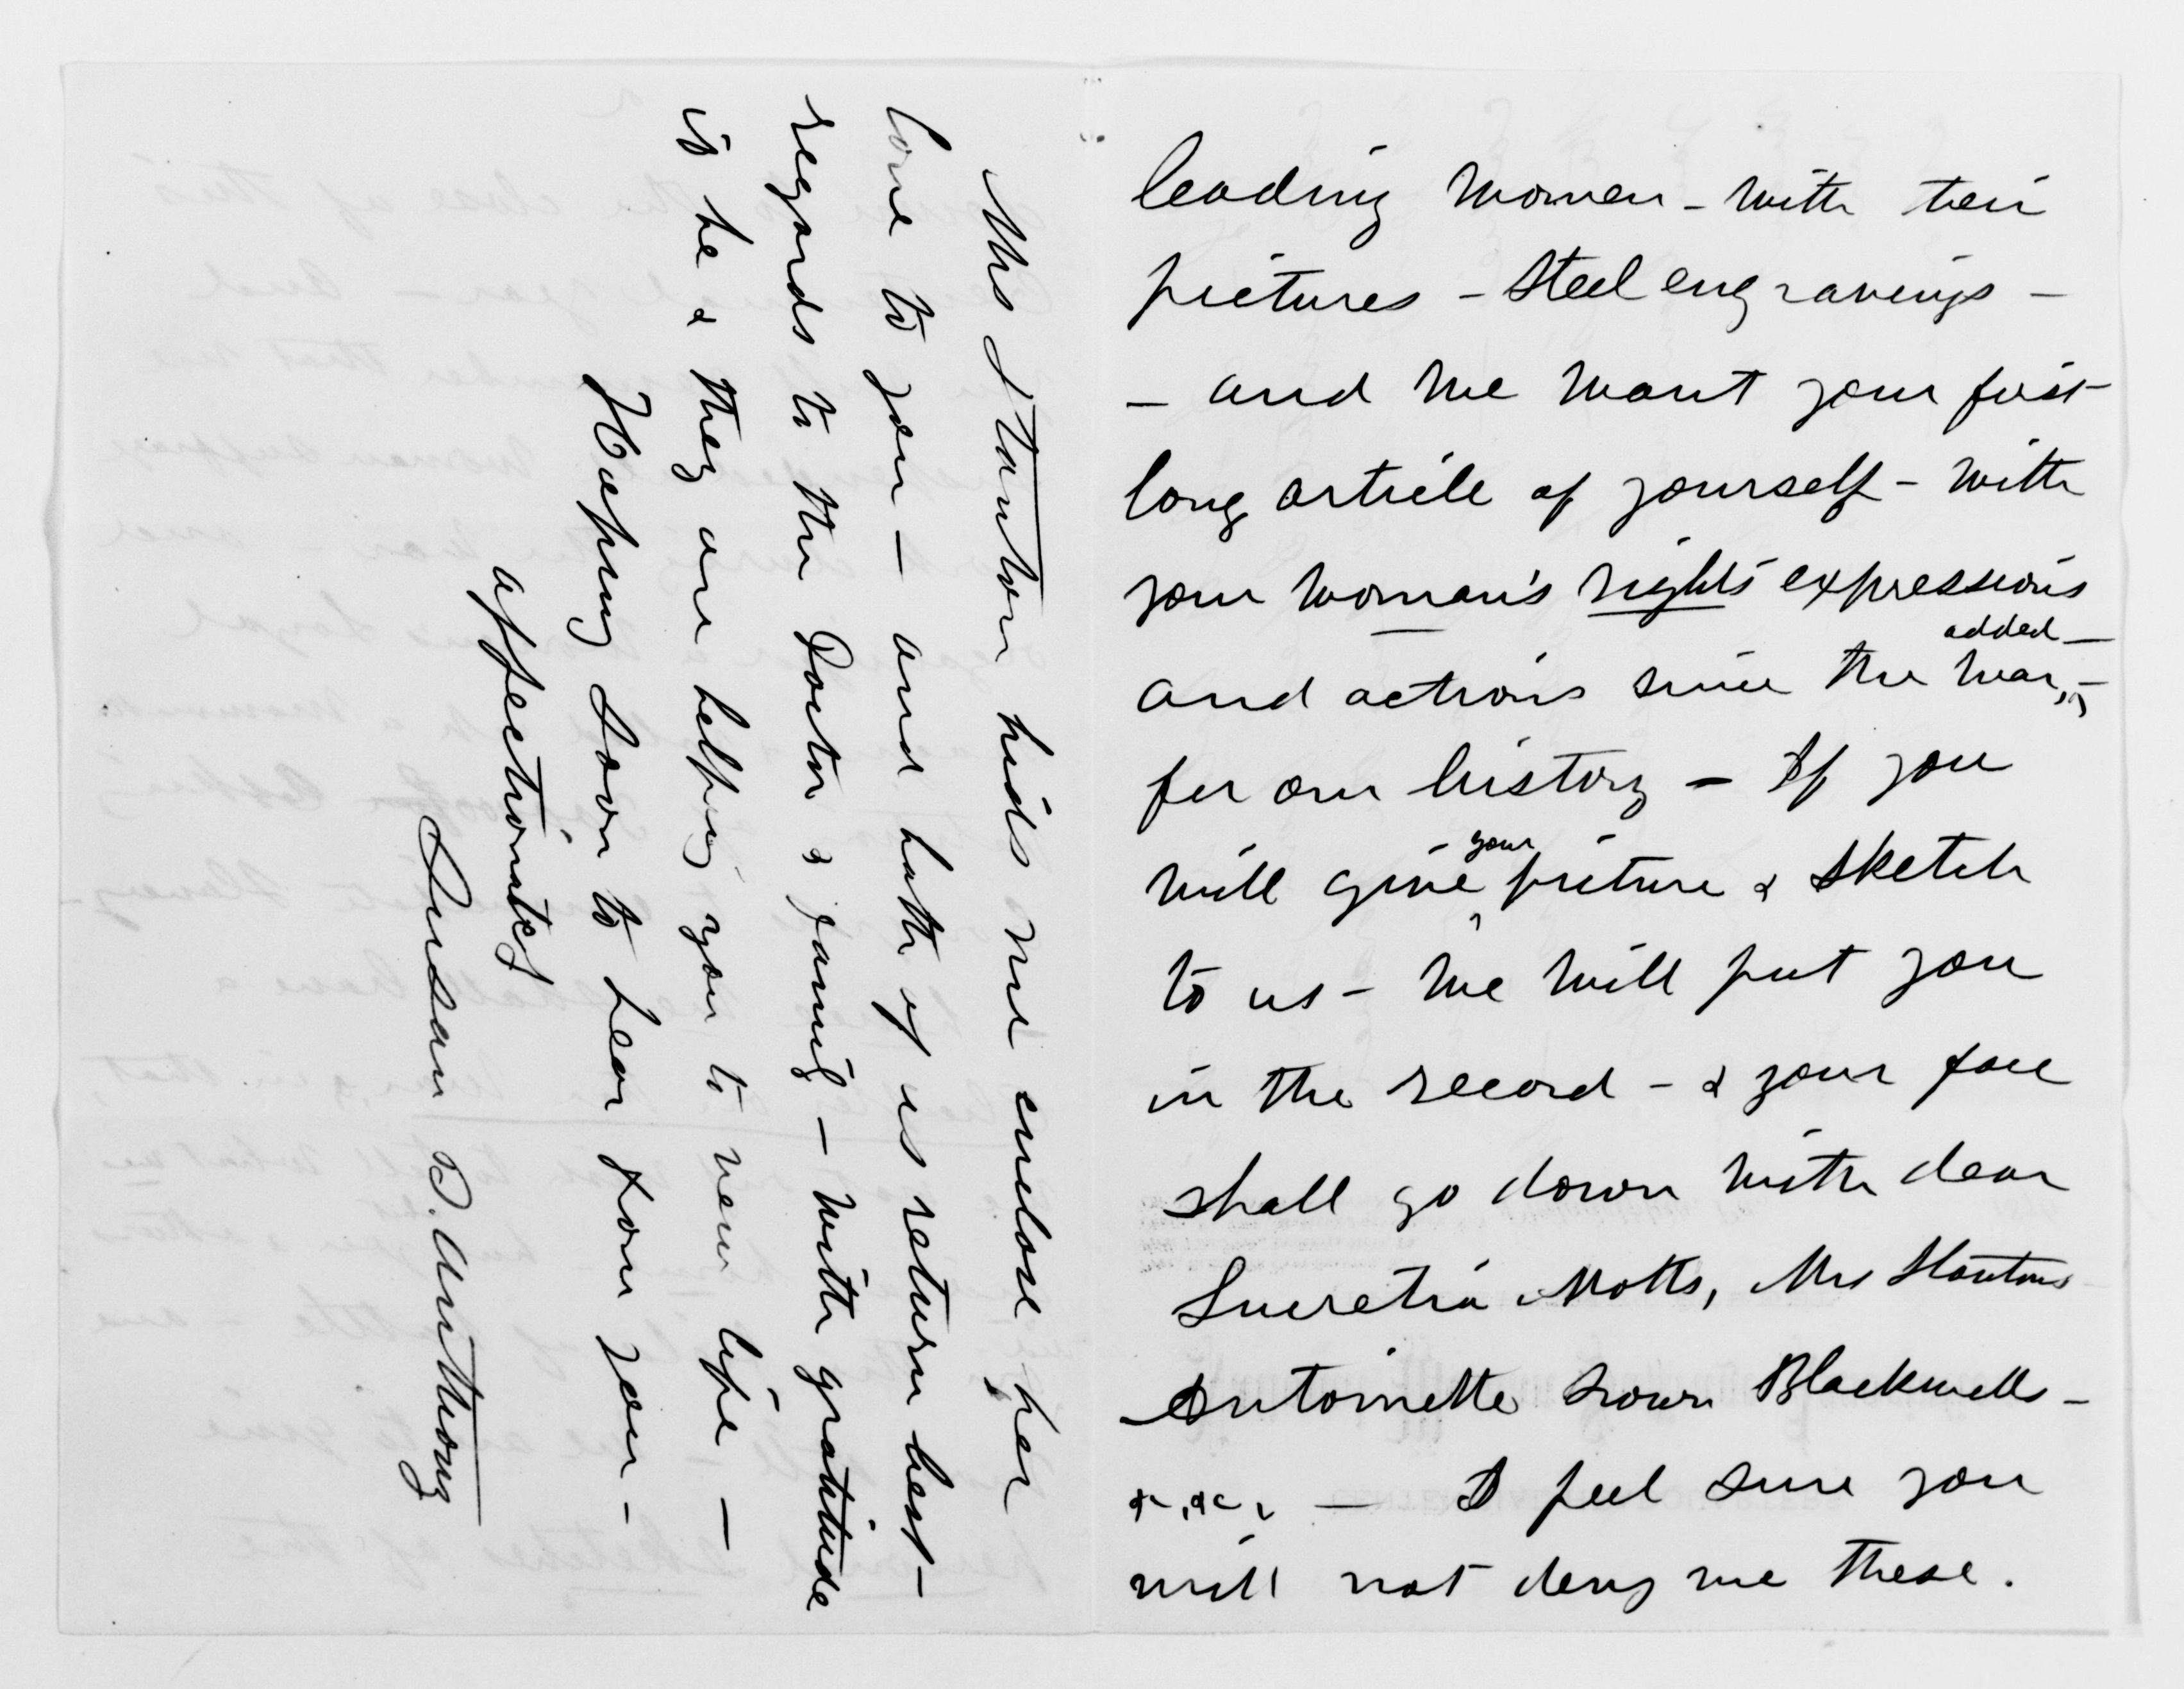 leading women - with their
pictures - steel engravings -
- and we want your first
long article of yourself - with
your woman's rights expressions
added -
and actions since the war, -
for our history - If you
your
will give picture & sketch
to us - we will put you
in the record - & your face
shall go down with dear
Lucretia Motts, Mrs Stantons
Antoinette Brown Blackwells -
&c, &c, - I feel sure you
will not deny me these.
Mrs Stanton bids me enclose her
love to you - and both of us return best -
regards to the Doctor & family - with gratitude
to he & they are helping you to new life -
Hoping soon to hear from you -
affectionately
Susan B. Anthony